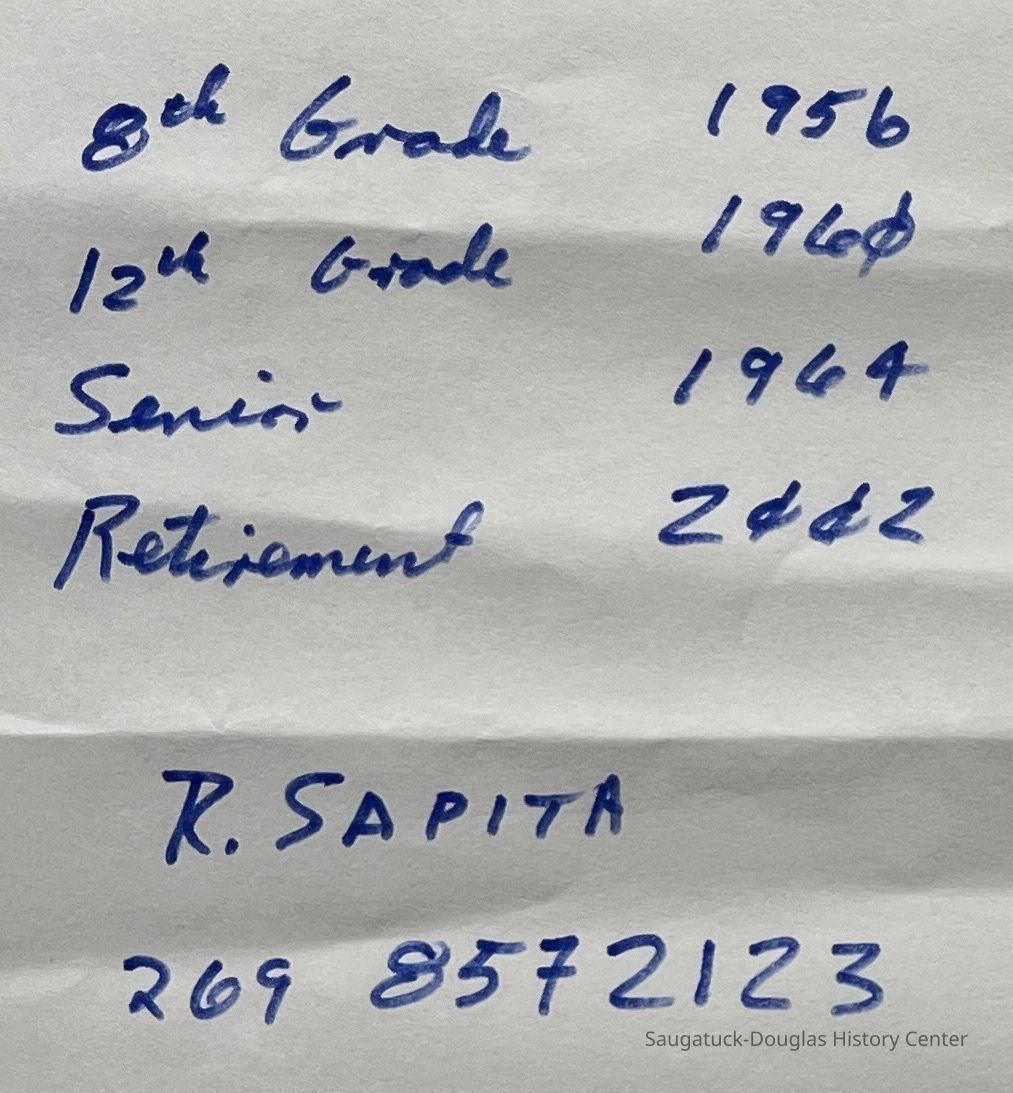 8th Grade 1956
12th Grade 1960
Senior 1964
Retirement 2002
R. SAPITA
269 8572123
Saugatuck-Douglas History Center